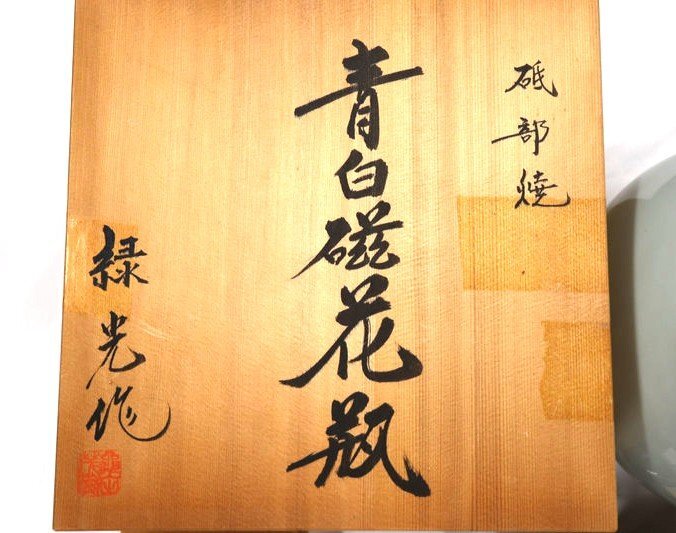 砥部焼
青白磁花瓶
緑光作